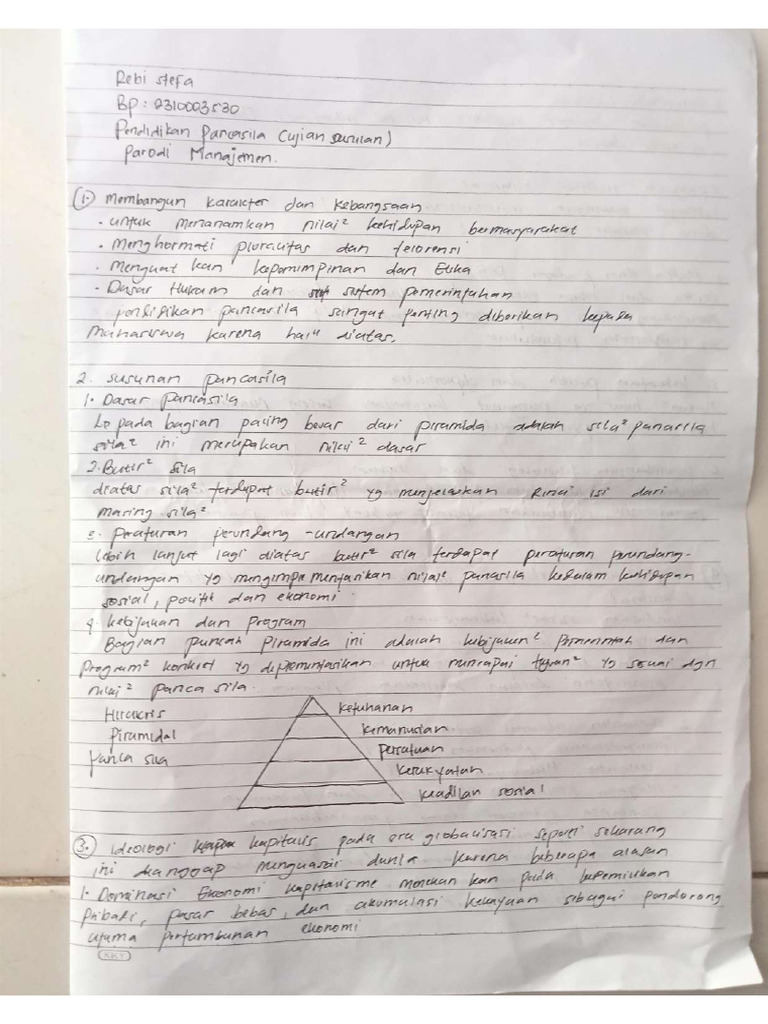 Rebi stefa
Bp : 2310003530
Pendidikan Pancasila (ujian susulan)
Parodi Manajemen.
1. Membangun karakter dan Kebangsaan
- untuk menanamkan nilai² kehidupan bermasyarakat
- Menghormati pluralitas dan telorensi
- Menguat kan kepemimpinan dan Etika
- Dasar Hukum dan sistem pemerintahan
pendidikan pancasila sangat penting diberikan kepada
mahasiswa karena hal² diatas.
2. susunan pancasila
1. Dasar pancasila
↳ pada bagian paling besar dari piramida adalah sila² panasila
sila² ini merupakan nilai² dasar
2. Butir² sila
diatas sila² terdapat butir² yg menjelaskan Rinci isi dari
masing sila²
3. Peraturan perundang-undangan
lebih lanjut lagi diatas butir² sila terdapat peraturan perundang-
undangan yg menjarikan nilai² panasila kedalam kehidupan
sosial, politik dan ekonomi.
4. kebijakan dan Program
Bagian puncak Piramida ini adalah kebijakan² Pemerintah dan
Program² konkret yg diplementasikan untuk mencapai tujuan² yg sesuai dgn
nilai² panca sila.
Hirarkris
Piramidal
Panca sila
ketuhanan
kemanusian
persatuan
kerakyatan
keadilan sosial
3. Ideologi kapitalis pada era globalisasi seperti sekarang
ini dianggap menguasai dunia karena beberapa alasan
1. Dominasi Ekonomi kapitalisme menekan kan pada kepemilikan
pribadi, pasar bebas, dan akumulasi kekayaan sebagai pendorong
utama pertumbuhan ekonomi
KKY